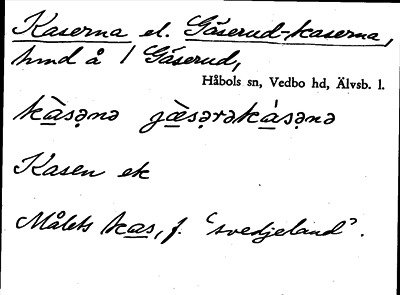 Kaserna el. Gäserud-kaserna,
hmd å 1 Gäserud,
Håbols sn, Vedbo hd, Älvsb. l.
kàsənə gæ̀sərəkásənə
Kasen ek
Målets kas, f. "svedjeland".